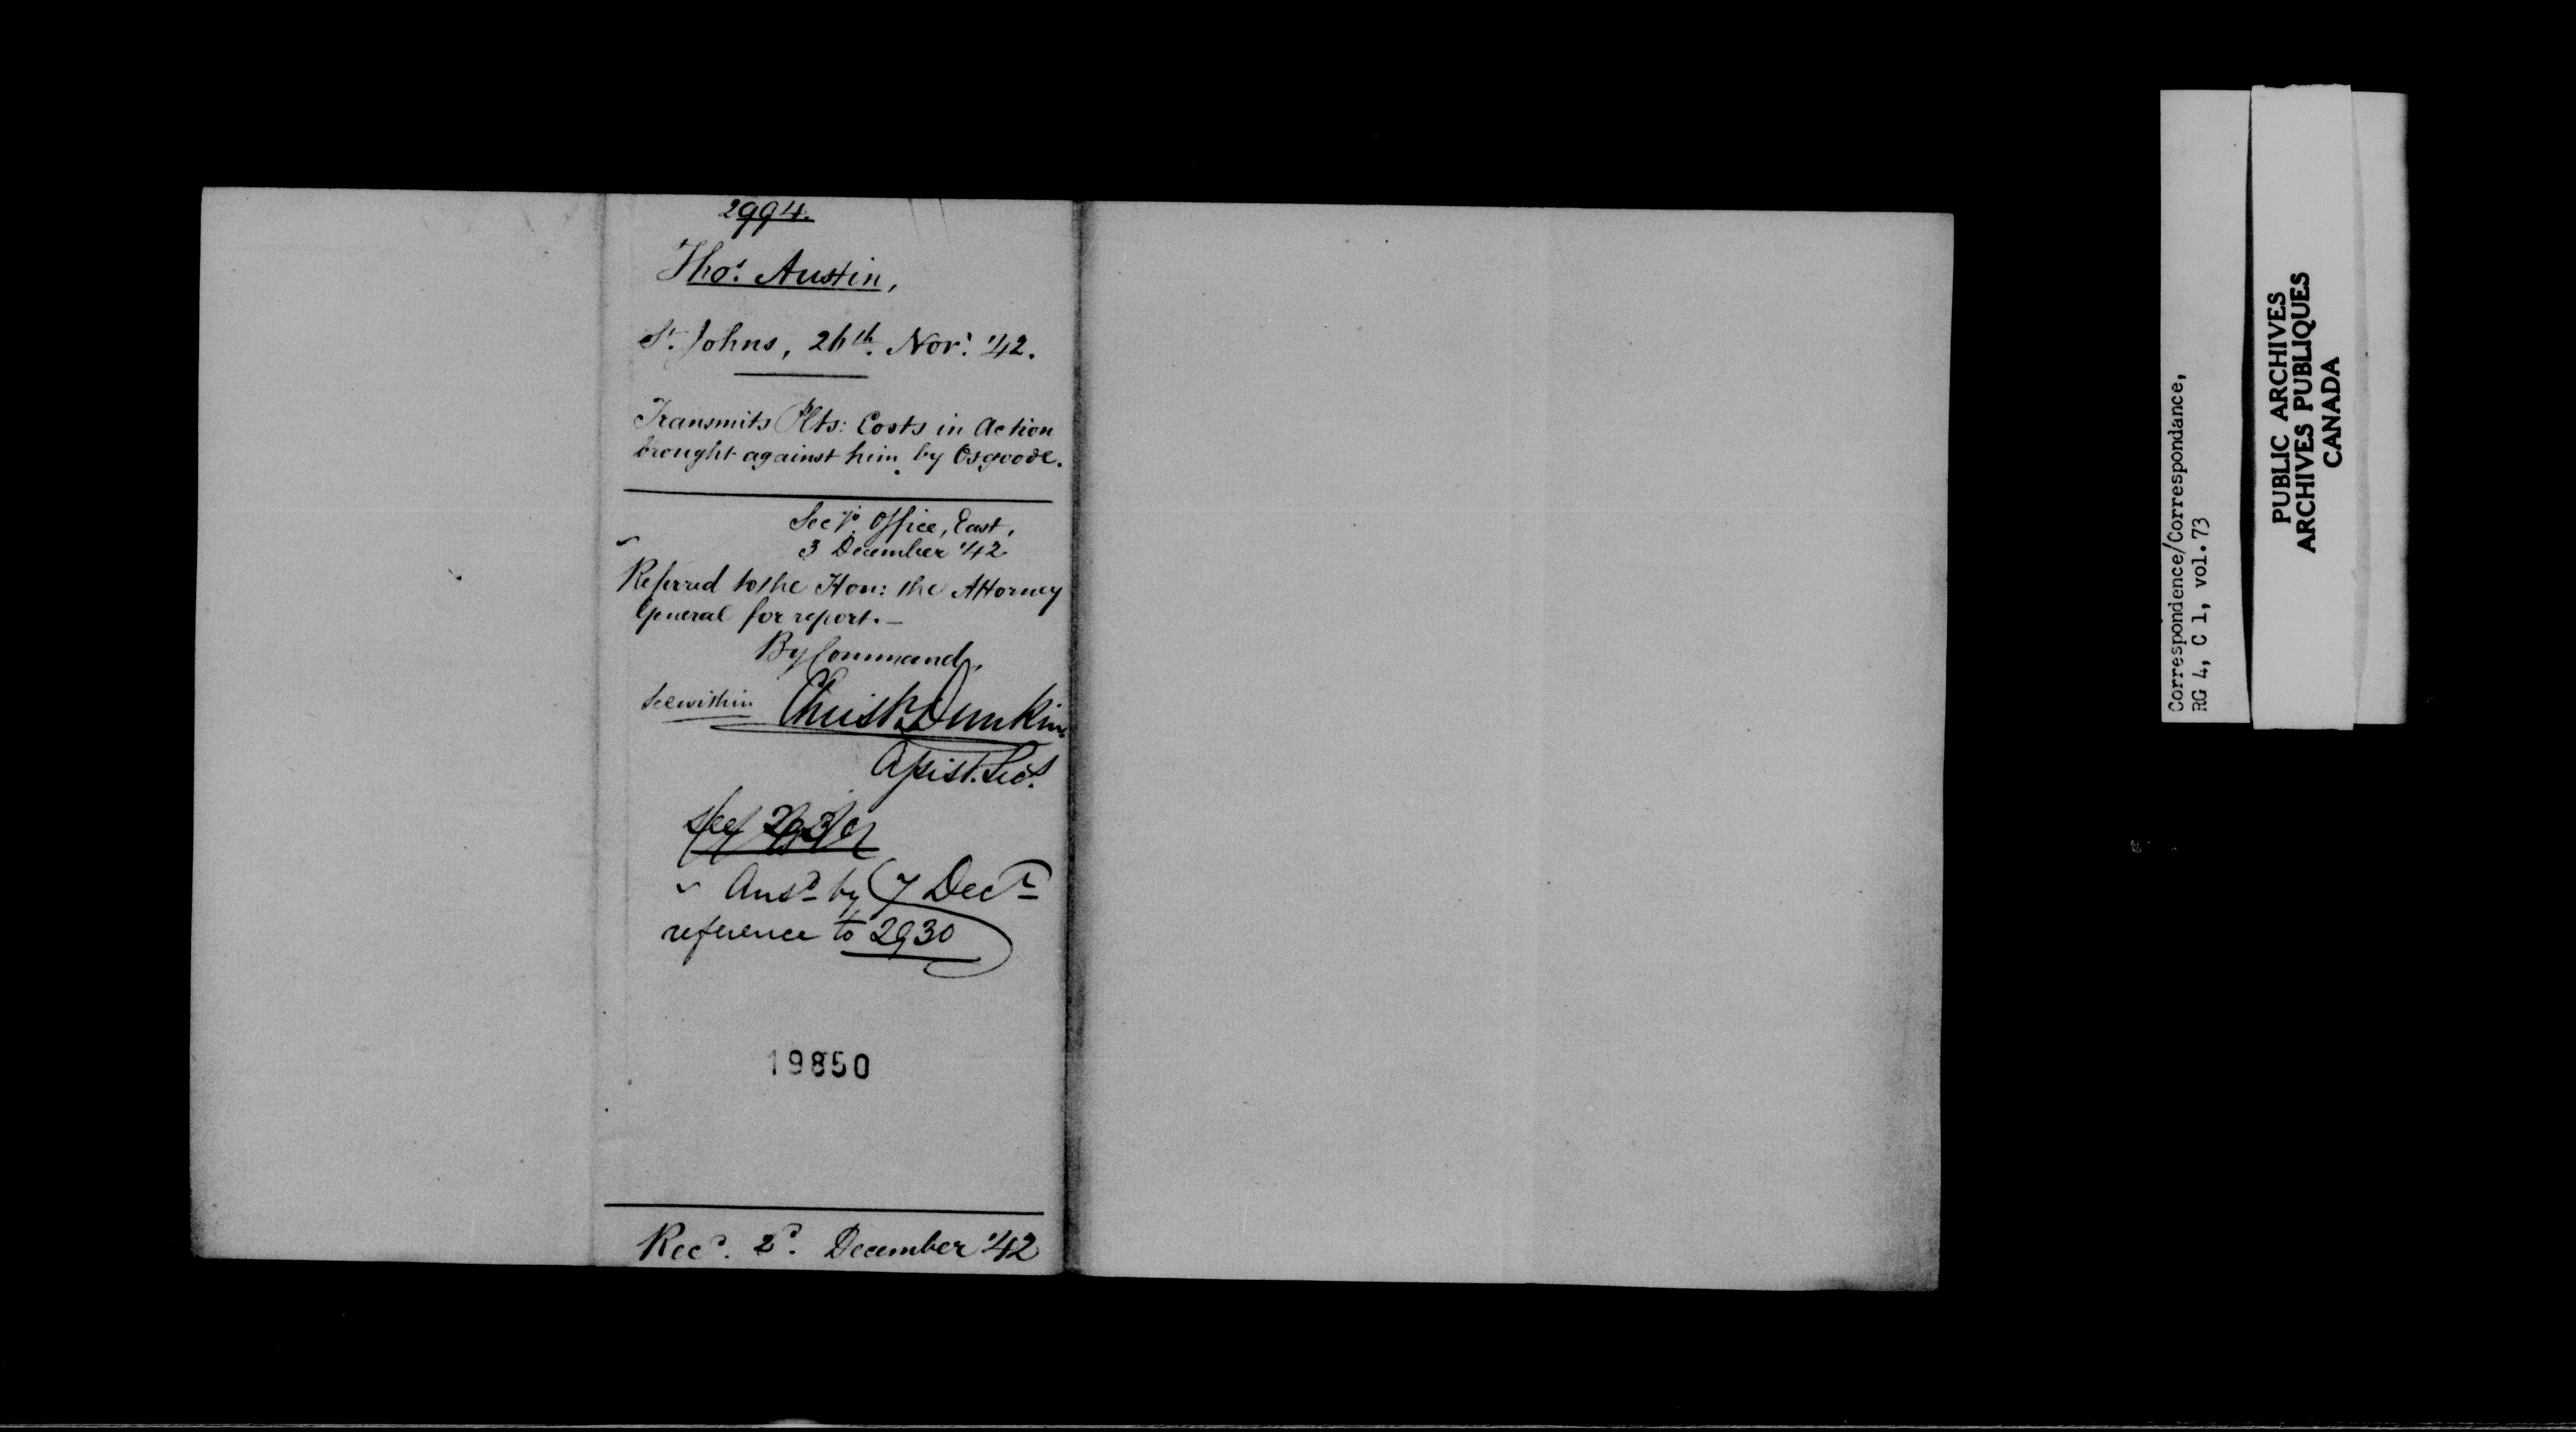 2994.
Thos. Austin,
St. Johns, 26th. Novr. '42.
Transmits Plts: Costs in Action
brought against him by Osgoode.
Secy's. Office, East,
3 December '42
Referred to the Hon: the Attorney
General for report.—
By Command,
See within Christr Dunkin
Assist. Secy.
See 2930
Ansd by 7 Decr
reference to 2930
19850
Recd. 2d. December '42
Correspondence/Correspondance,
RG 4, C 1, vol.73
PUBLIC ARCHIVES
ARCHIVES PUBLIQUES
CANADA